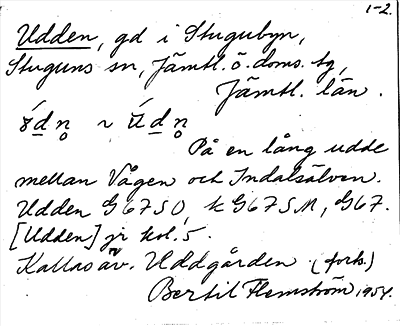 1-2.
Udden, gd i Stugubyn,
Stuguns sn, Jämtl. ö. doms. tg,
Jämtl. län.
På en lång udde
mellan Vågen och Indalsälven.
Udden G67SO, k G67SM, G67.
[Udden] jr kol. 5.
Kallas äv. Uddgården (forts.)
Bertil Flemström, 1954.